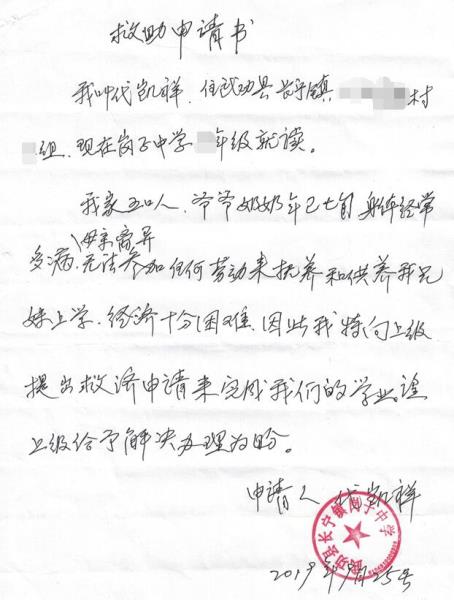 救助申请书
我叫代凯祥，住武功县长宁镇村
组，现在岗子中学年级就读。
我家五口人，爷爷奶奶年已七旬，身体经常
母亲离异
多病，无法参加任何劳动来抚养和供养我兄
妹上学，经济十分困难，因此我特向上级
提出救济申请来完成我们的学业，望
上级给予解决办理为盼。
申请人 代凯祥
武功县长宁镇岗子中学
2019年9月25号